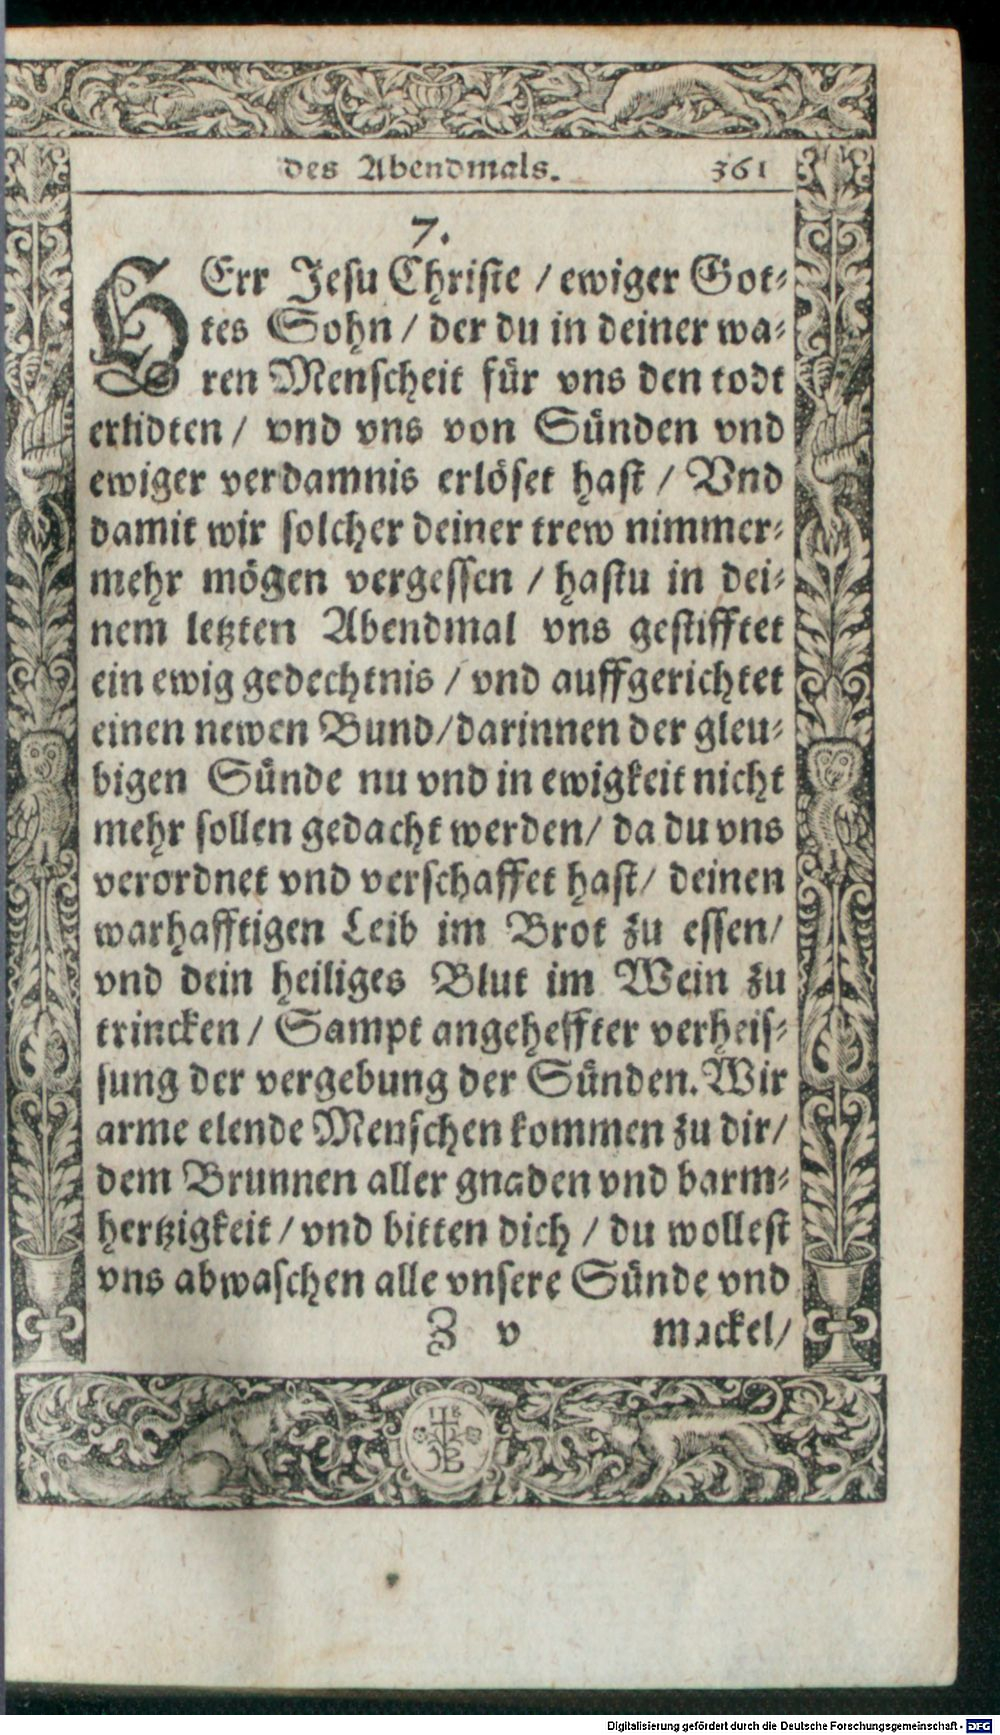 des Abendmals. 361
7.
HErr Jesu Christe / ewiger Got-
tes Sohn / der du in deiner wa-
ren Menscheit für vns den todt
erlidten / vnd vns von Sünden vnd
ewiger verdamnis erlöset hast / Vnd
damit wir solcher deiner trew nimmer-
mehr mögen vergessen / hastu in dei-
nem letzten Abendmal vns gestifftet
ein ewig gedechtnis / vnd auffgerichtet
einen newen Bund / darinnen der gleu-
bigen Sünde nu vnd in ewigkeit nicht
mehr sollen gedacht werden / da du vns
verordnet vnd verschaffet hast / deinen
warhafftigen Leib im Brot zu essen /
vnd dein heiliges Blut im Wein zu
trincken / Sampt angeheffter verheis-
sung der vergebung der Sünden. Wir
arme elende Menschen kommen zu dir /
dem Brunnen aller gnaden vnd barm-
hertzigkeit / vnd bitten dich / du wollest
vns abwaschen alle vnsere Sünde vnd
Z v mackel /
Digitalisierung gefördert durch die Deutsche Forschungsgemeinschaft - DFG